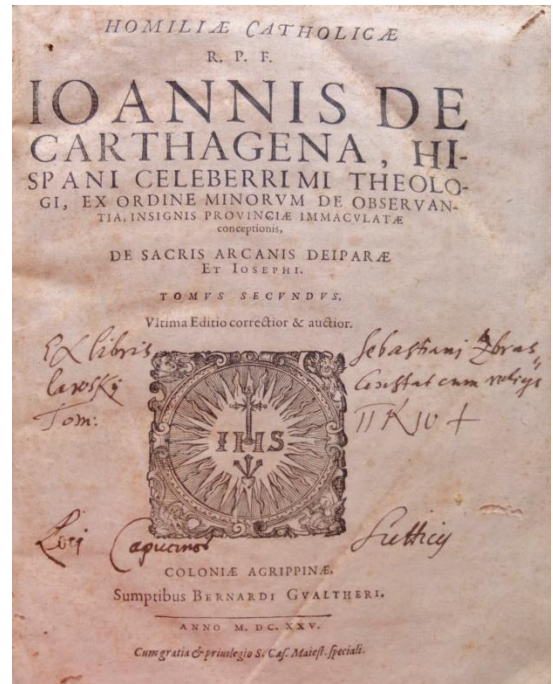 HOMILIÆ CATHOLICÆ
R. P. F.
IOANNIS DE
CARTHAGENA, HI-
SPANI CELEBERRIMI THEOLO-
GI, EX ORDINE MINORVM DE OBSERVAN-
TIA, INSIGNIS PROVINCIÆ IMMACVLATÆ
conceptionis,
DE SACRIS ARCANIS DEIPARÆ
ET IOSEPHI.
TOMVS SECVNDVS.
Vltima Editio correctior & auctior.
Ex libris Sebastiani Zbras
lawsky Constat cum religs
Tom:
IHS
Loci Capucinor Sutticy
COLONIÆ AGRIPPINÆ,
Sumptibus BERNARDI GVALTHERI.
ANNO M. DC. XXV.
Cum gratia & priuilegio S. Cæs. Maiest. speciali.